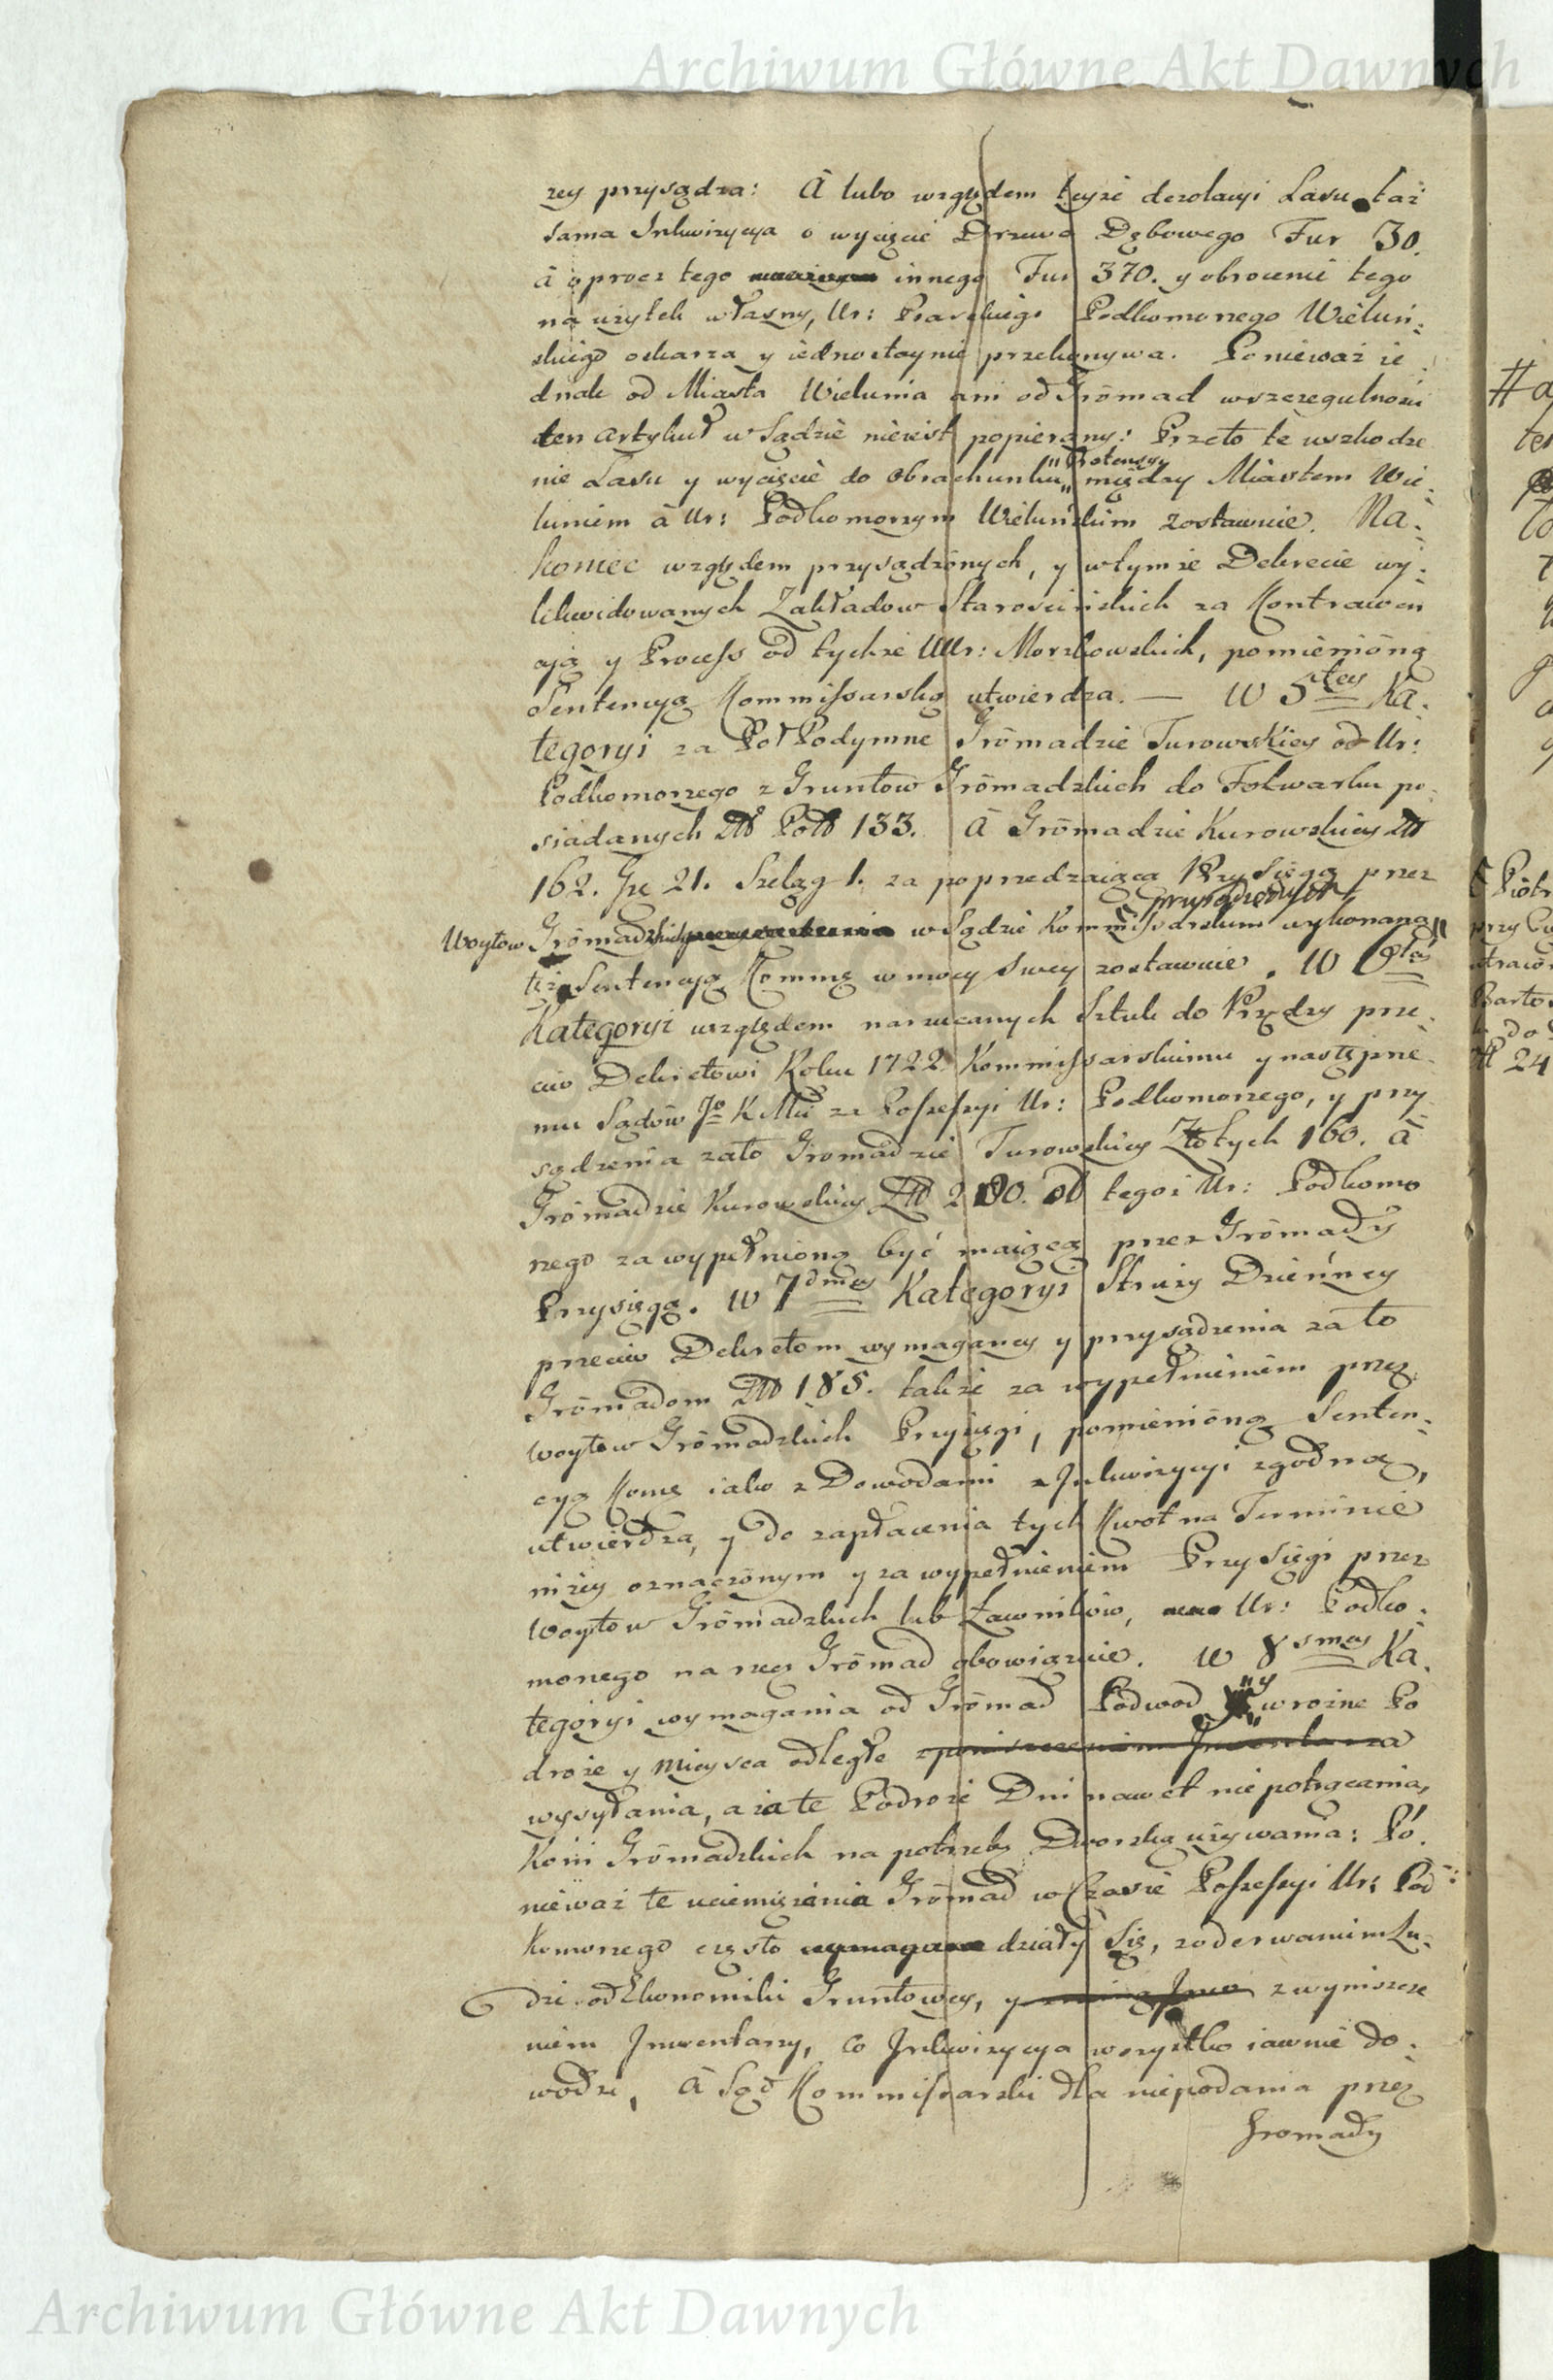 Archiwum Główne Akt Dawnych
rey przysądza: À lubo względem teyże dezolacyi Lasu taż
sama Inkwizycya o wycięcie Drzewa Dębowego Fur 30.
à oprocz tego innego Fur 370. y obrocenie tego
na użytek własny, Ur: Psarskiego Podkomorzego Wieluń-
skiego oskarza y iednostaynie przekonywa. Ponieważ ie
dnak od Miasta Wielunia ani od Grömad wszczegulnosci
ten Artykuł w Sądzie nieiest popierany: Przeto te uszkodze
nie Lasu y wycięcie do Obrachunku „Pretensyi„ między Miastem Wie-
luniem à Ur: Podkomorzym Wieluńskim zostawuie. Na-
koniec względem przysądzonych, y wtymże Dekrecie wy-
likwidowanych Zakładow Starościńskich za Kontrawen
cyą y Process od tychże UUr: Morzkowskich, pomienioną
Sentencyą Kommissarską utwierdza. — W 5tey Ka-
tegoryi za Poł Podymne Grömadzie Turowskiey od Ur:
Podkomorzego z Gruntow Grömadzkich do Folwarku po-
siadanych Złł Poll 133. À Grömadzie Kurowskiey Złł
162. Gr 21. Szeląg 1. za poprzedzaiącą Przysięgą przez
Woytow Grömadzkich w Sądzie Kommissarskim przysądzonych wykonaną
też Sentencyą Kommę w mocy swey zostawuie. W 6tey
Kategoryi względem narzucanych Sztuk do Przędzy prze-
ciw Dekretowi Roku 1722. Kommissarskiemu y następne-
mu Sądów Jo K Mci za Possessyi Ur: Podkomorzego, y przy
sądzenia zato Gromadzie Turowskiey Złotych 160. à
Grömadzie Kurowskiey Złł 280. od tegoż Ur: Podkomo
rzego za wypełnioną być maiącą przez Grömady
Przysięgą. W 7dmey Kategoryi Straży Dzieńney
przeciw Dekretom wymaganey y przysądzenia za to
Grömadom Złł 185. także za wypełnieniem przez
Woytow Grömadzkich Przysięgi, pomienioną Senten-
cyą Komę iako z Dowodami z Inkwizycyi zgodną,
utwierdza, y do zapłacenia tych Kwot na Terminie
niżey oznaczonym y za wypełnieniem Przysięgi przez
Woytow Grömadzkich lub Ławnikow, Ur: Podko-
morzego na rzecz Grömad obowiązuie. W 8smey Ka-
tegoryi wymagania od Grömad Podwod y w rożne Po
droże y Mieysca odległe z poniszczeniem Inwentarza
wysyłania, a za te Podroże Dni nawet nie potrącania,
Koni Grömadzkich na potrzebę Dworską używania: Po-
nieważ te uciemiężenia Grömad w Czasie Possessyi Ur: Pod-
komorzego często wymagane działy się, z oderwaniem Lu-
dzi od Ekonomiki Gruntowey, y z wyniszcze
niem Inwentarzy, co Inkwizycya wszystko iawnie do-
wodzi, À Sąd Kommissarski dla niepodania przez
Gromady
Archiwum Główne Akt Dawnych